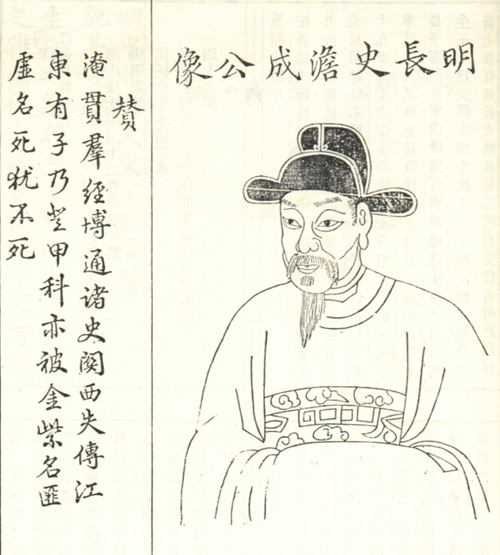 明長史澹成公像
贊
淹貫羣經博通诸史関西失傳江
東有子乃登甲科亦被金紫名匪
虛名死犹不死